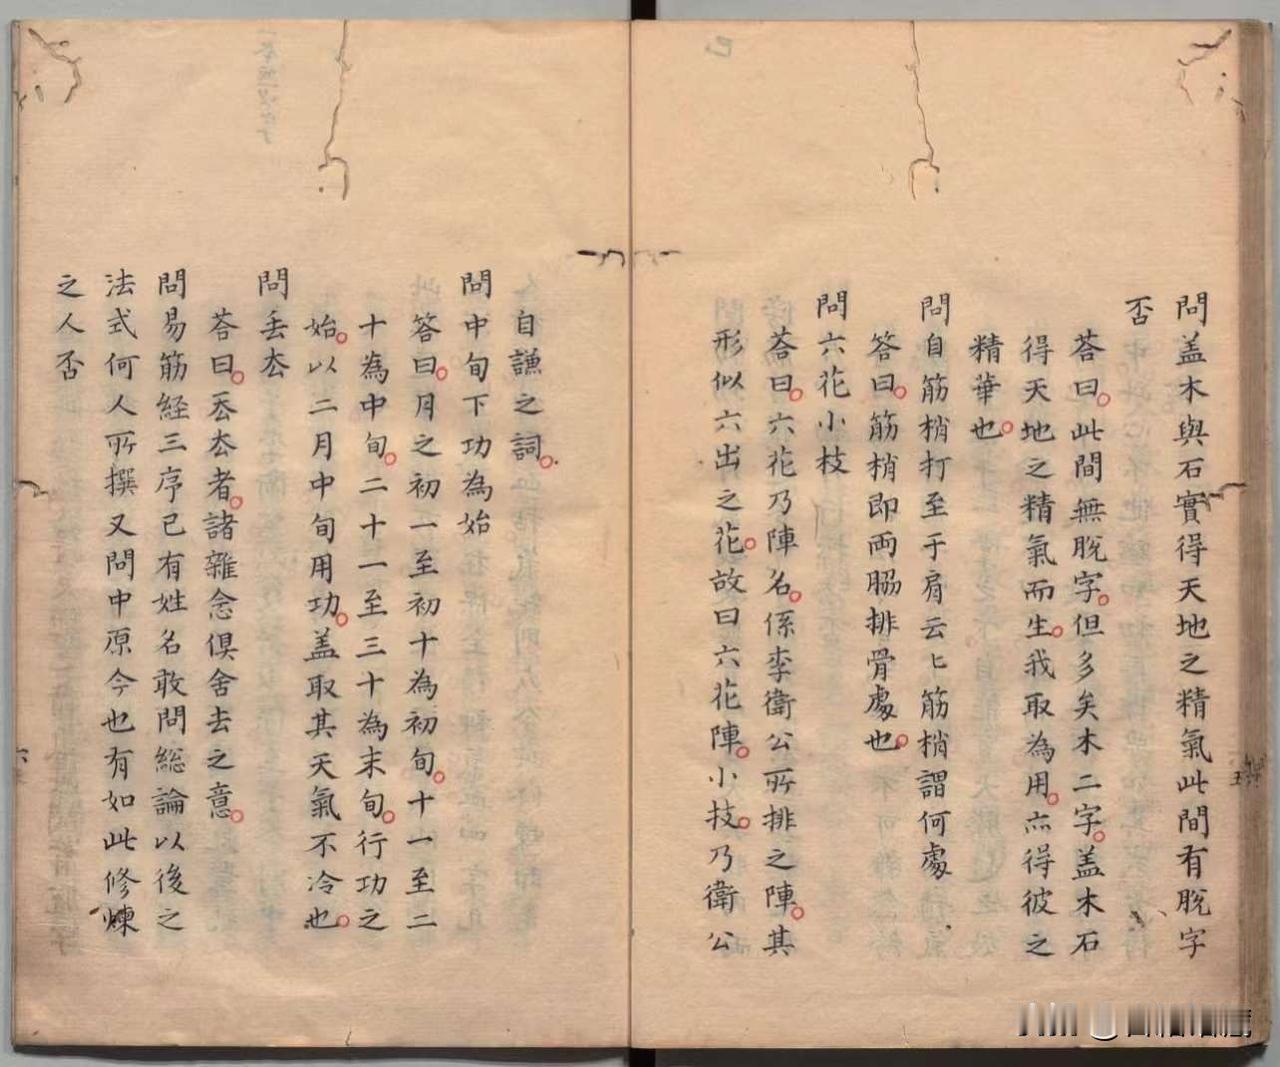 問盖木與石實得天地之精氣此間有脫字
否
荅曰。此間無脫字。但多矣木二字。盖木石
得天地之精氣而生。我取為用。亦得彼之
精華也。
問自筋梢打至于肩云〻筋梢謂何處
答曰。筋梢即両脇排骨處也。
問六花小枝
荅曰。六花乃陣名。係李衛公所排之陣。其
形似六出之花。故曰六花陣。小技。乃衛公
自謙之詞。
問中旬下功為始
答曰。月之初一至初十為初旬。十一至二
十為中旬。二十一至三十為末旬。行功之
始。以二月中旬用功。盖取其天氣不冷也。
問丢厺
荅曰。丟厺者。諸雜念俱舍去之意。
問易筋経三序已有姓名敢問総論以後之
法式何人所撰又問中原今也有如此修煉
之人否
五
六